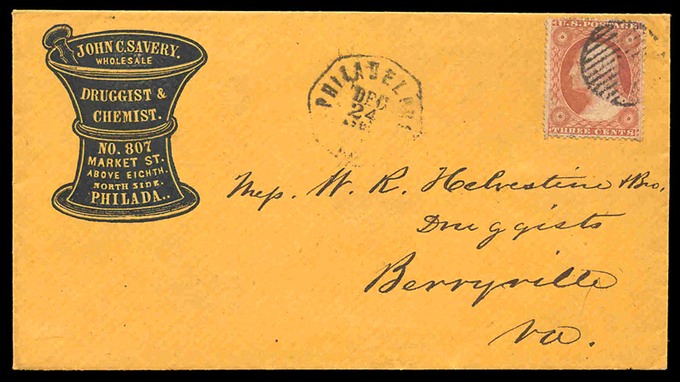 JOHN C. SAVERY.
WHOLESALE
DRUGGIST &
CHEMIST.
NO. 807
MARKET ST.
ABOVE EIGHTH.
NORTH SIDE.
PHILADA..
PHILADELPHIA
DEC
24
U.S. POSTAGE
THREE CENTS
Mess. W. R. Helvestine & Bro.
Druggists
Berryville
Va.